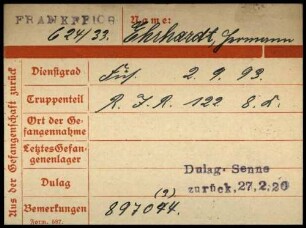 FRAWENPIOS
Name:
624/33. Ehrhardt, Hermann
Aus der Gefangenschaft zurück
Dienstgrad Füs. 2. 9. 93.
Truppenteil R. I. R. 122 8. L.
Ort der Gefangennahme
Letztes Gefangenenlager
Dulag
Dulag-Senne
zurück, 27.2.20
(9)
Bemerkungen 897044.
Form. 697.